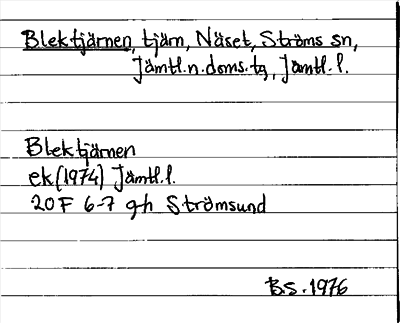 Blektjärnen, tjärn, Näset, Ströms sn,
Jämtl.n.doms.tg, Jämtl.l.
Blektjärnen
ek(1974) Jämtl.l.
20F 6-7 g-h Strömsund
BS. 1976